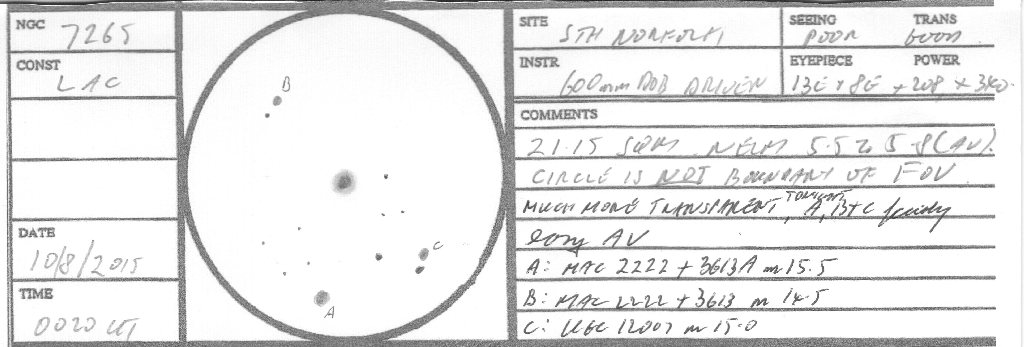 NGC 7265
CONST LAC
DATE 10/8/2015
TIME 0020 UT
B
C
A
SITE STH NORFOLK
SEEING POOR
TRANS GOOD
INSTR 600mm DOB DRIVEN
EYEPIECE 13E + 8E
POWER + 208 +
COMMENTS
21.15 SQM NELM 5.5 to 5.8 (AV).
CIRCLE IS NOT BOUNDARY OF FOV
MUCH MORE TRANSPARENT TONIGHT, A, B + C fairly
easy AV
A: MAC 2222 + 3613A m 15.5
B: MAC 2222 + 3613 m 14.5
C: UGC 12007 m 15.0